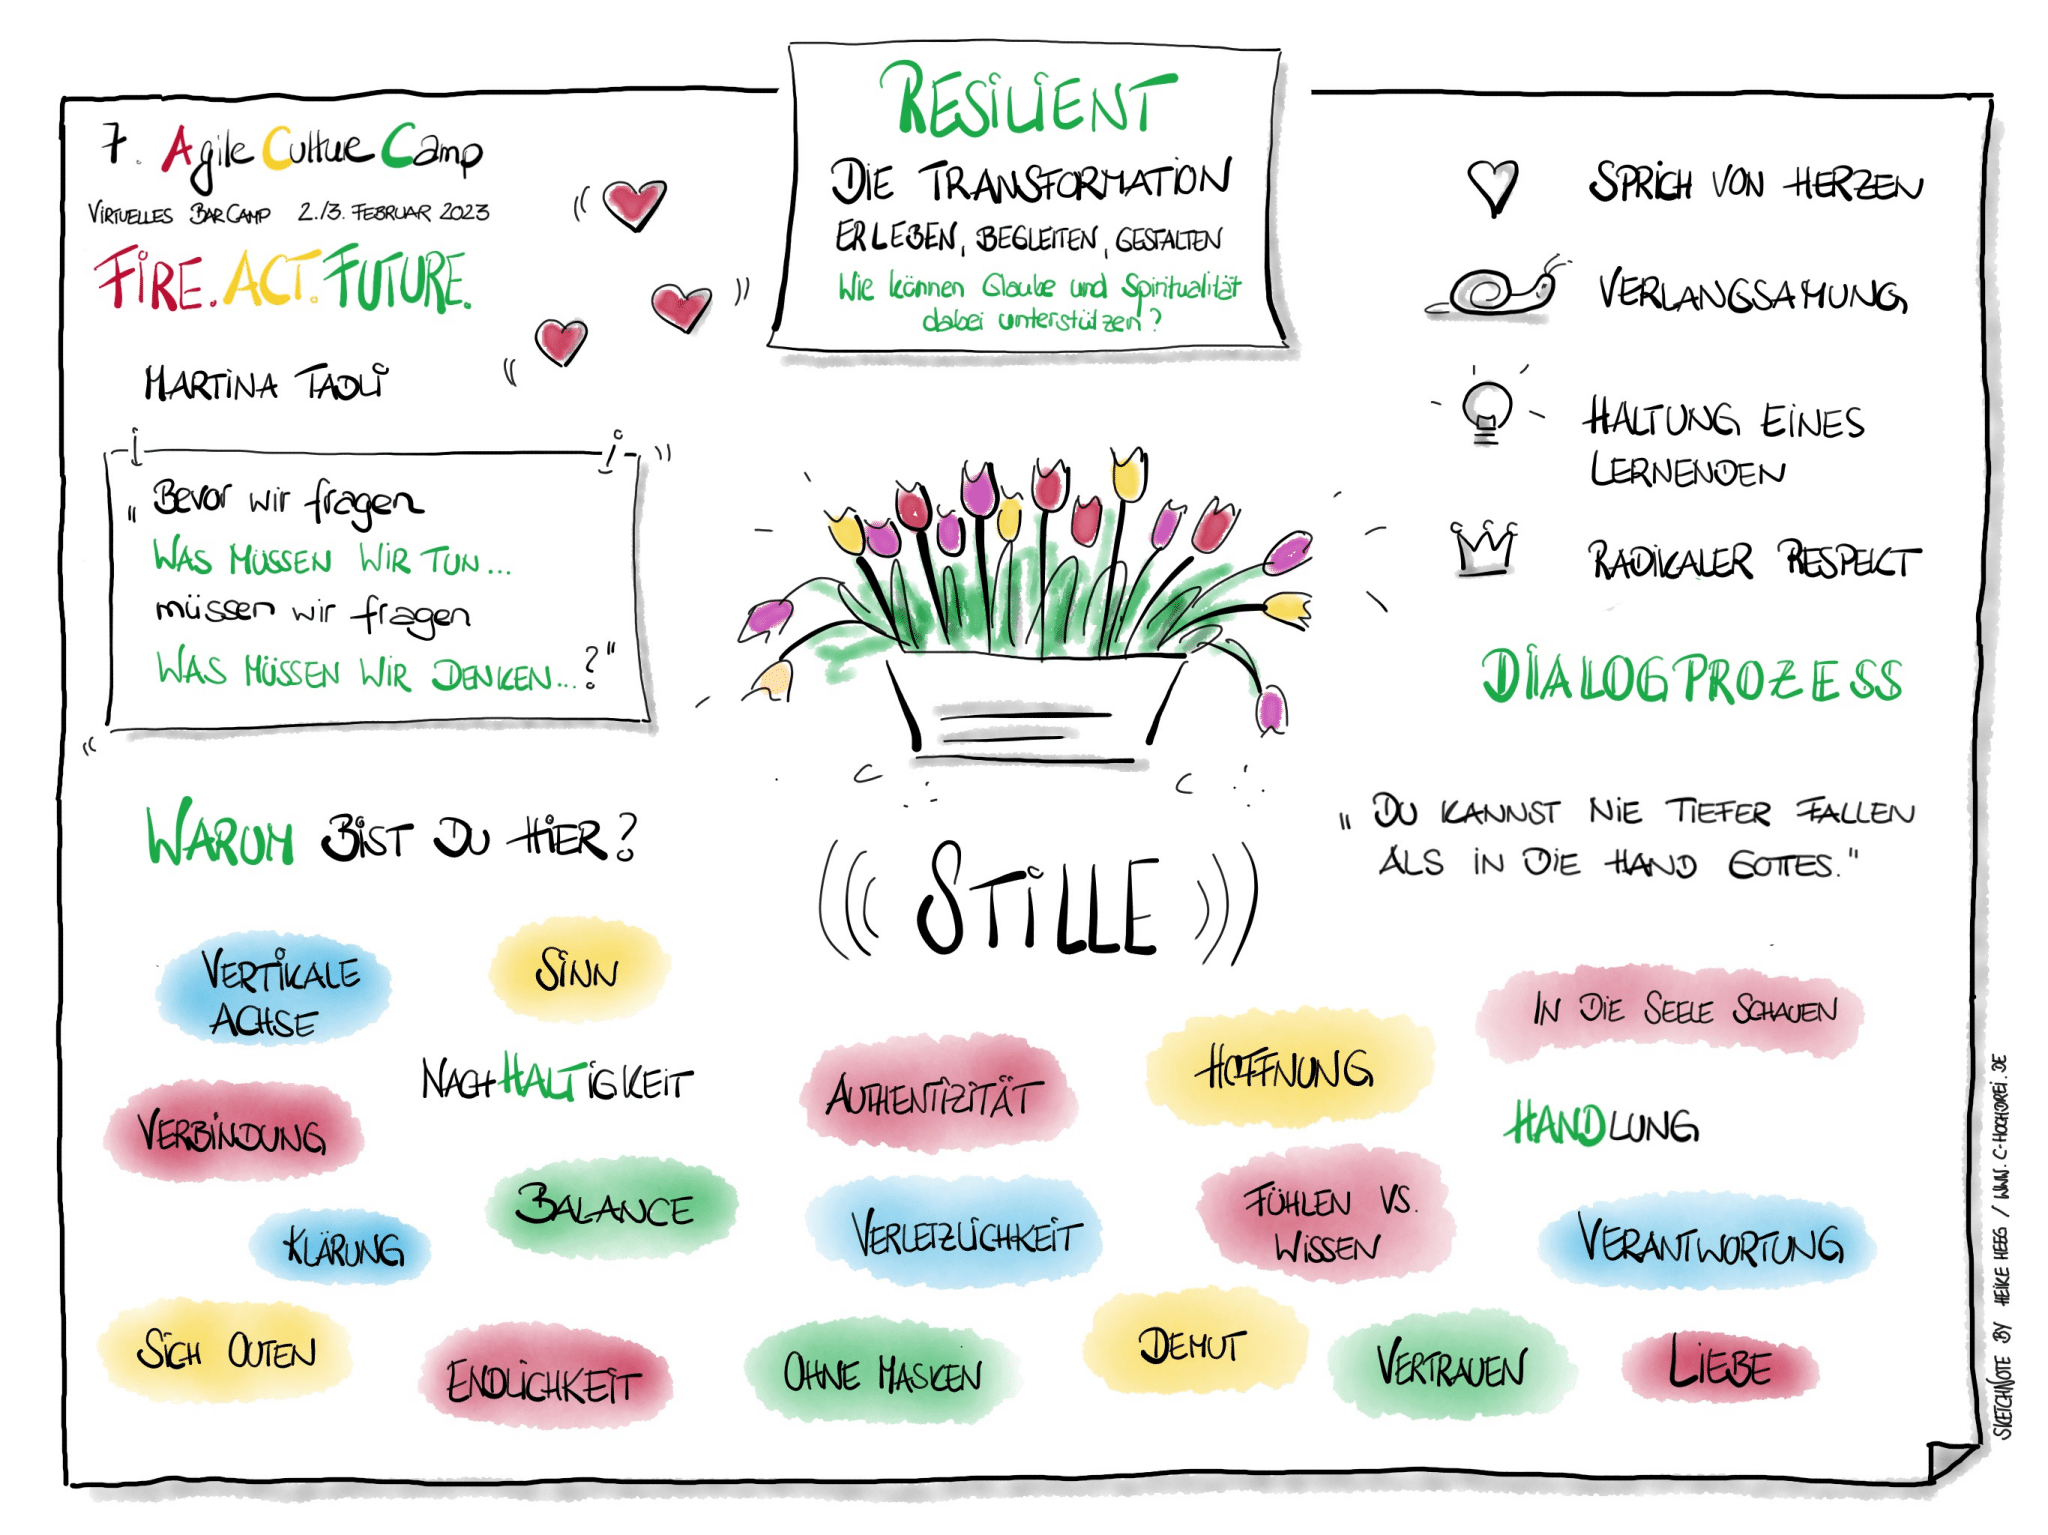 7. Agile Culture Camp
Virtuelles BarCamp 2./3. Februar 2023
FIRE. ACT. FUTURE.
MARTINA TADLI
RESILIENT
DIE TRANSFORMATION
ERLEBEN, BEGLEITEN, GESTALTEN
Wie können Glaube und Spiritualität
dabei unterstützen?
SPRICH VON HERZEN
VERLANGSAMUNG
HALTUNG EINES
LERNENDEN
RADIKALER RESPEKT
DIALOGPROZESS
„Bevor wir fragen
WAS MÜSSEN WIR TUN...
müssen wir fragen
WAS MÜSSEN WIR DENKEN...?"
„DU KANNST NIE TIEFER FALLEN
ALS IN DIE HAND GOTTES."
WARUM BIST DU HIER?
STILLE
VERTIKALE
ACHSE
SINN
NACHHALTIGKEIT
VERBINDUNG
BALANCE
KLÄRUNG
SICH OUTEN
ENDLICHKEIT
AUTHENTIZITÄT
HOFFNUNG
IN DIE SEELE SCHAUEN
HANDLUNG
VERLETZLICHKEIT
FÜHLEN VS.
WISSEN
VERANTWORTUNG
OHNE MASKEN
DEMUT
VERTRAUEN
LIEBE
SKETCHNOTE BY HEIKE HEEG / WWW.C-HOCHDREI.DE